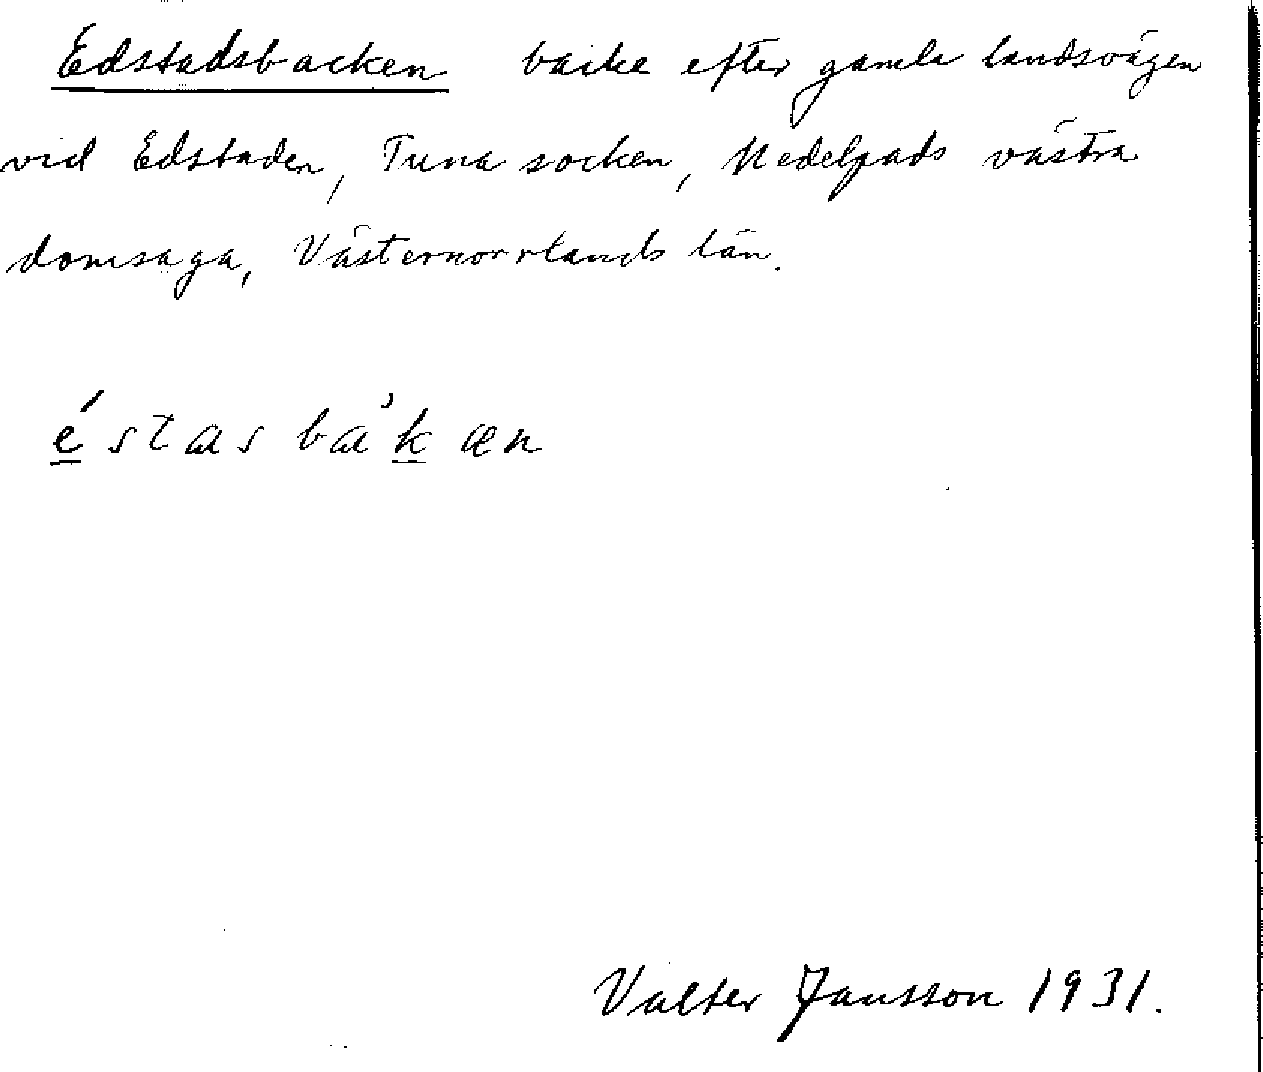 Edstadsbacken backe efter gamla landsvägen
vid Edstaden, Tuna socken, Medelpads västra
domsaga, Västernorrlands län.
é̲stasbàk̲æn
Valter Jansson 1931.